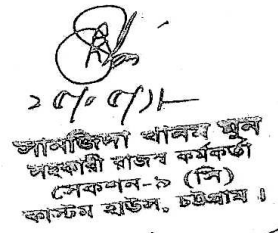 সানজিদা খানম মুন
সহকারী রাজস্ব কর্মকর্তা
সেকশন-৯ (সি)
কাস্টম হাউস, চট্টগ্রাম।